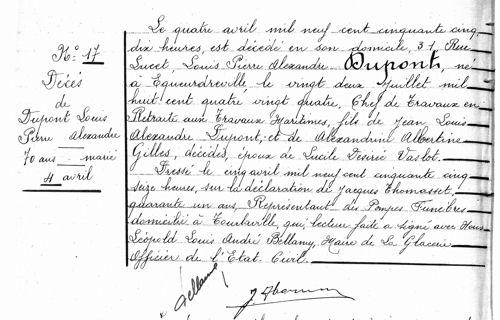 N° 17
Décès
de
Dupont Louis
Pierre Alexandre
70 ans marié
4 avril
Le quatre avril mil neuf cent cinquante cinq
dix heures, est décédé en son domicile, 31, Rue
Lucet, Louis Pierre Alexandre Dupont, né
à Equeurdreville le vingt deux Juillet mil
huit cent quatre vingt quatre, Chef de Travaux en
Retraite aux Travaux Maritimes, fils de Jean Louis
Alexandre Dupont, et de Alexandrine Albertine
Gilles, décédés, époux de Lucile Désirée Vastot.
Dressé le cinq avril mil neuf cent cinquante cinq
seize heures, sur la déclaration de Jacques Thomasset,
quarante un ans, Représentant des Pompes Funèbres
domicilié à Tourlaville, qui, lecture faite a signé avec Nous
Léopold Louis André Bellamy, Maire de La Glacerie
Officier de l'Etat-Civil.
Bellamy